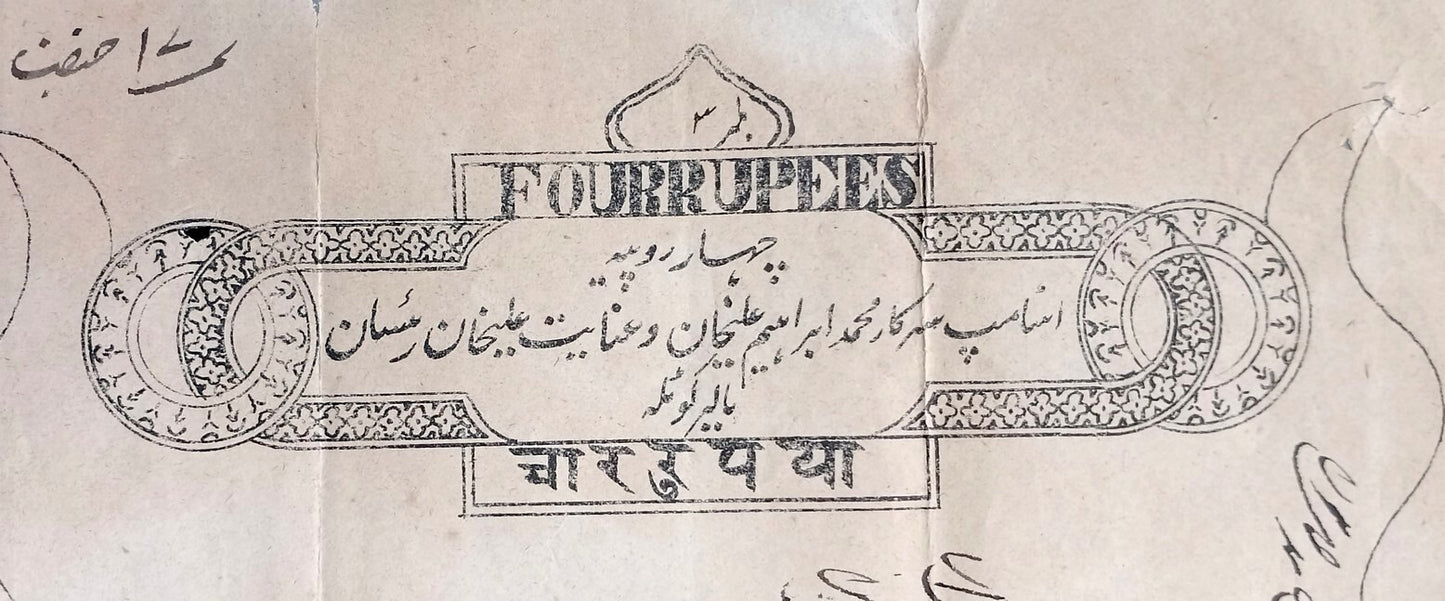 نمبر ٣
FOUR RUPEES
چہار روپیہ
اشامپ سرکار محمد ابراہیم علیخان و عنایت علیخان رئسان
مالیرکوٹلہ
चार रुपया